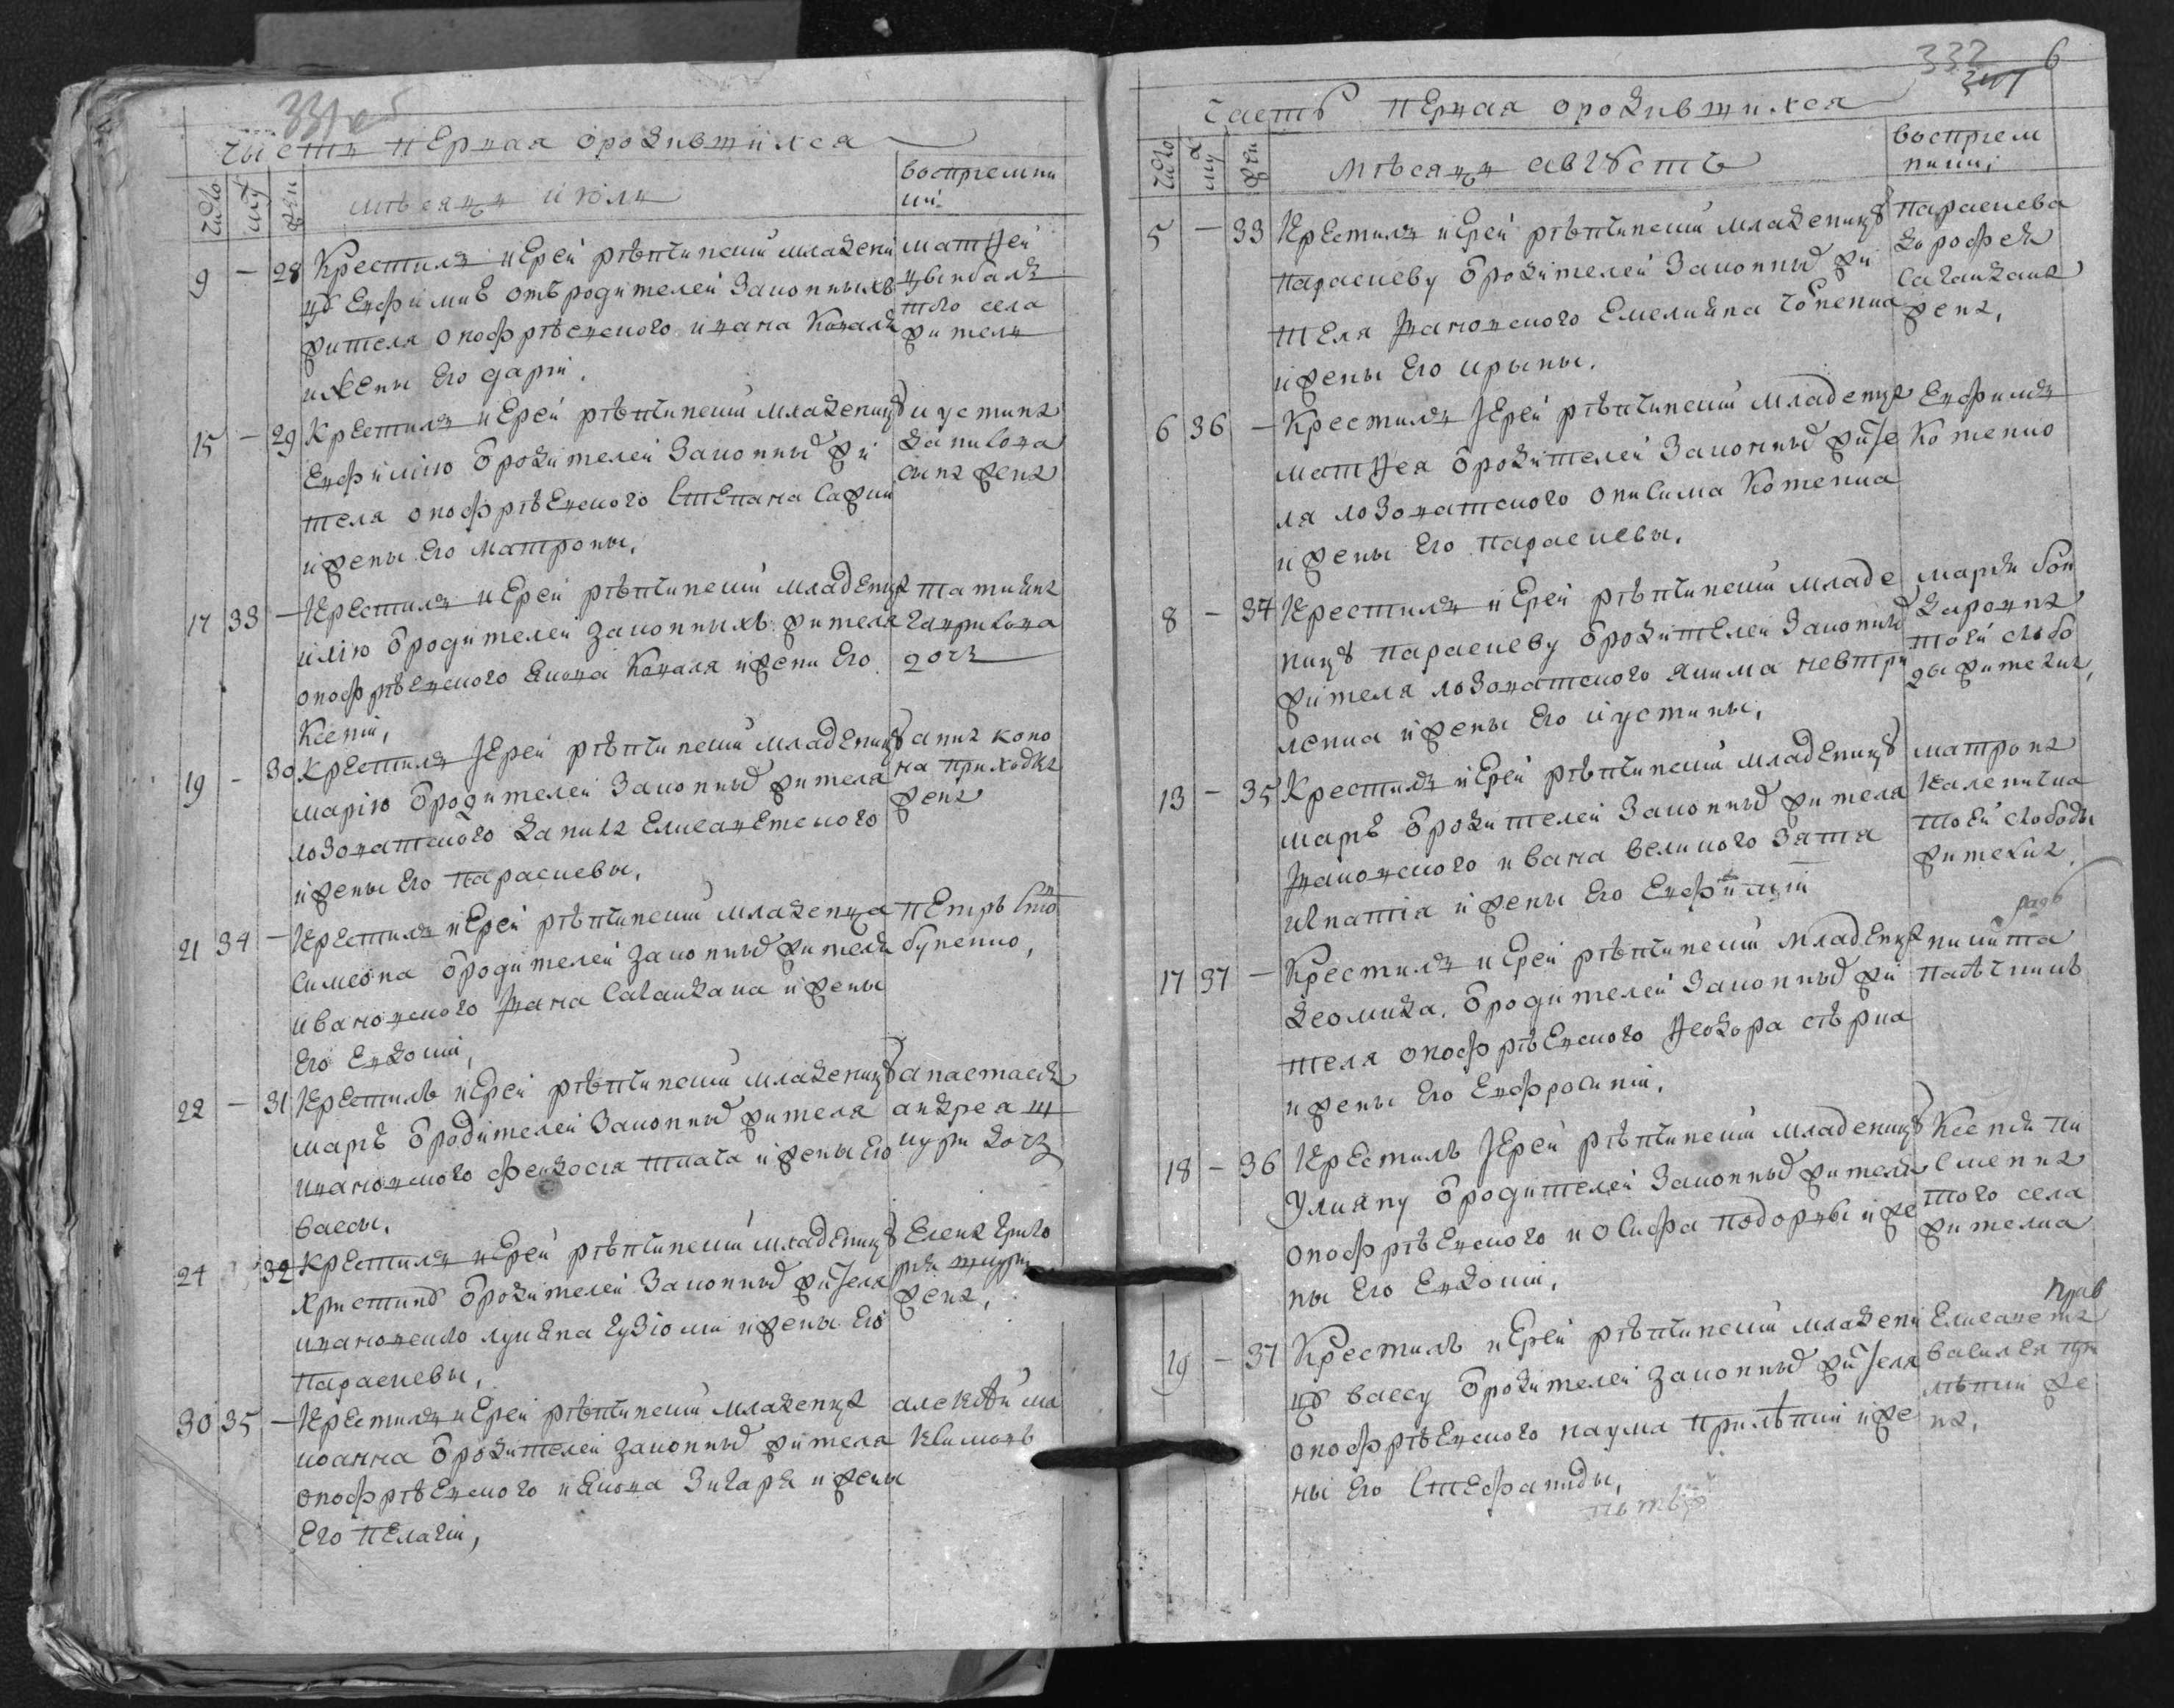 331 об
часть первая о родившихся
число
муж
жен
мѣсяцъ июль
восприемни
ки
9 – 28 Крестилъ иерей рѣпчинский младени
цу Евфимию отъ родителей законныхъ
жителя онофрѣевского ивана Коваля
и жены его дарии.
матфей
цымбалъ
того села
житель
15 – 29 Крестилъ иерей рѣпчинский младеницу
Евфимию от родителей законных жи
теля онофрѣевского Степана
и жены его матроны,
иустина
данилова
жена
17 33 – Крестилъ иерей рѣпчинский младенца
илию от родителей законныхъ жителя
онофрѣевского якова Коваля и жени его
Ксении,
татиана
гаврилова
дочь
19 – 30 Крестилъ иерей рѣпчинский младеницу
марию от родителей законных жителя
лозоватского данила Елисаветского
и жены его параскевы,
анна коно
на приходка
жена
21 34 – Крестилъ иерей рѣпчинский младенца
симеона от родителей законных жителя
ивановского ивана сагайдака и жены
его Евдокии,
петръ сто
буненко,
22 – 31 Крестилъ иерей рѣпчинский младеницу
марѳу от родителей законных жителя
ивановского феодосия ткача и жены его
вассы.
анастасия
андрея ш
кури дочь
24 32 Крестилъ иерей рѣпчинский младеницу
христину от родителей законных жителя
ивановского лукяна гудзоми и жены его
параскевы,
Елена григо
рия шкури
жена,
30 35 – Крестилъ иерей рѣпчинский младенца
иоанна от родителей законных жителя
онофрѣевского иякова Зигаря и жены
его пелагии,
алексѣй ма
ксимовъ
332
347
6
часть первая о родившихся
число
муж
жен
мѣсяцъ августъ
восприем
ники
5 – 33 Крестилъ иерей рѣпчинский младеницу
параскеву от родителей законных жи
теля ивановского Емелияна
и жены его ирыны.
параскева
дорофея
сагайдака
жена,
6 36 – Крестилъ иерей рѣпчинский младенца
матфея от родителей законных жите
ля лозоватского онисима Котенка
и жены его параскевы,
Евфимъ
Котенко
8 – 34 Крестилъ иерей рѣпчинский младе
ницу параскеву от родителей законных
жителя лозоватского якима невтри
ленка и жены его иустины,
мария бон
даровна
тоей слобо
ды жителка,
13 – 35 Крестилъ иерей рѣпчинский младеницу
марѳу от родителей законных жителя
ивановского ивана великого зятя
игнатия и жены его Евфимии
матрона
Каленичка
тоей слободы
жителка,
17 37 – Крестилъ иерей рѣпчинский младенца
диомида от родителей законных жи
теля онофрѣевского феодора сѣрка
и жены его Евфросинии,
никита
18 – 36 Крестилъ иерей рѣпчинский младеницу
Улияну от родителей законных жителя
онофрѣевского иосифа подорвы и же
ны его Евдокии,
Ксения пи
сменна
того села
жителка
19 – 37 Крестилъ иерей рѣпчинский младени
цу вассу от родителей законных жителя
онофрѣевского наума прилѣпки и же
ны его Стефаниды,
Елисавета
василия при
лѣпки же
на,